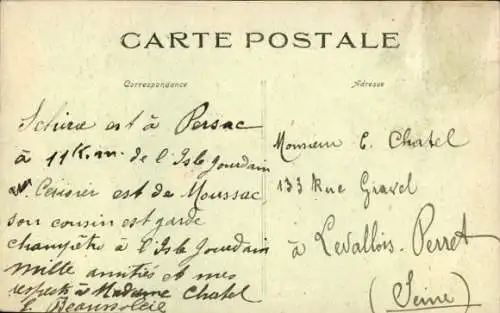 CARTE POSTALE
Correspondance
Adresse
Schirx est à Persac
à 11 K.m. de l'Isle Jourdain
est de Moussac
son cousin est garde
champêtre à l'Isle Jourdain
Mille amitiés et mes
respects à Madame Chatel
E. Beausoleil
Monsieur E. Chatel
133 Rue Gravel
à Levallois-Perret
(Seine)